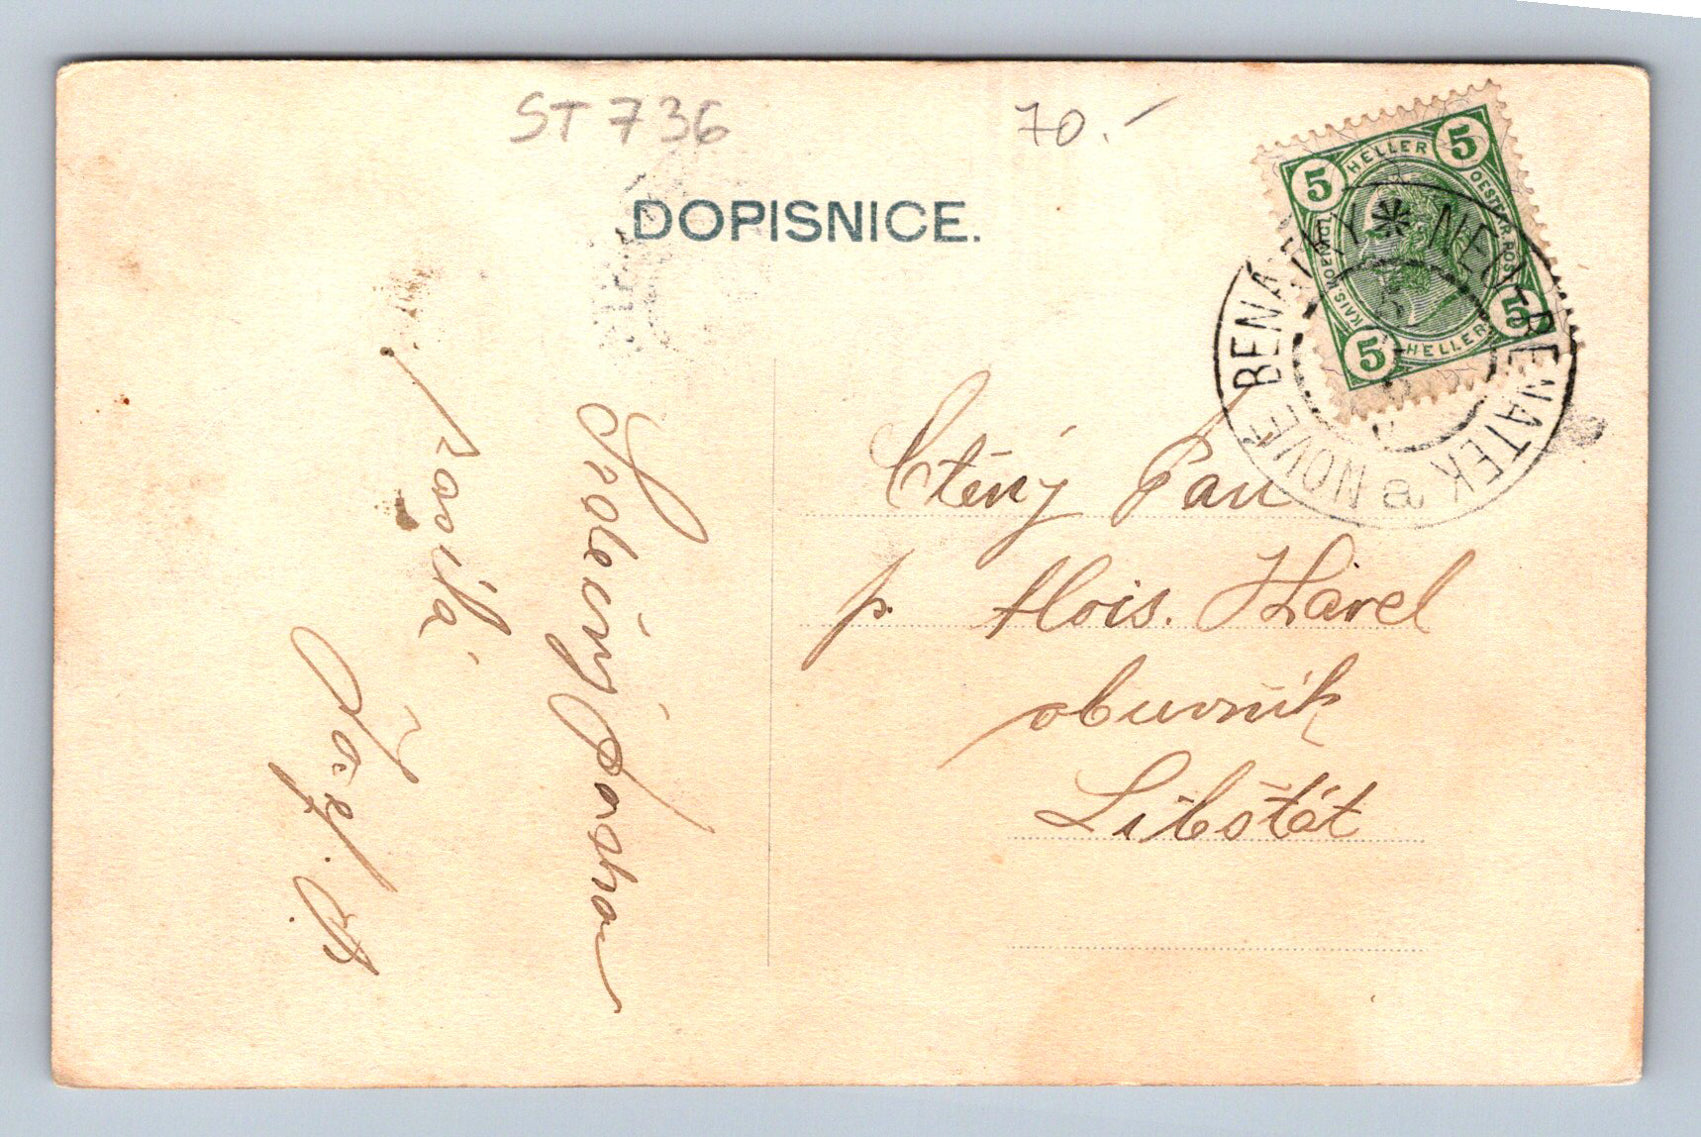 ST 736
70.-
DOPISNICE.
5 HELLER 5
KAIS. KOENIGL. OESTERR. POST
5 HELLER 5
NOVÉ BENÁTKY * NEU-BENATEK
a
Ctěný Pan
p. Alois. Havel
obuvník
Libštát
Srdečný pozdrav
posílá
Josef. B